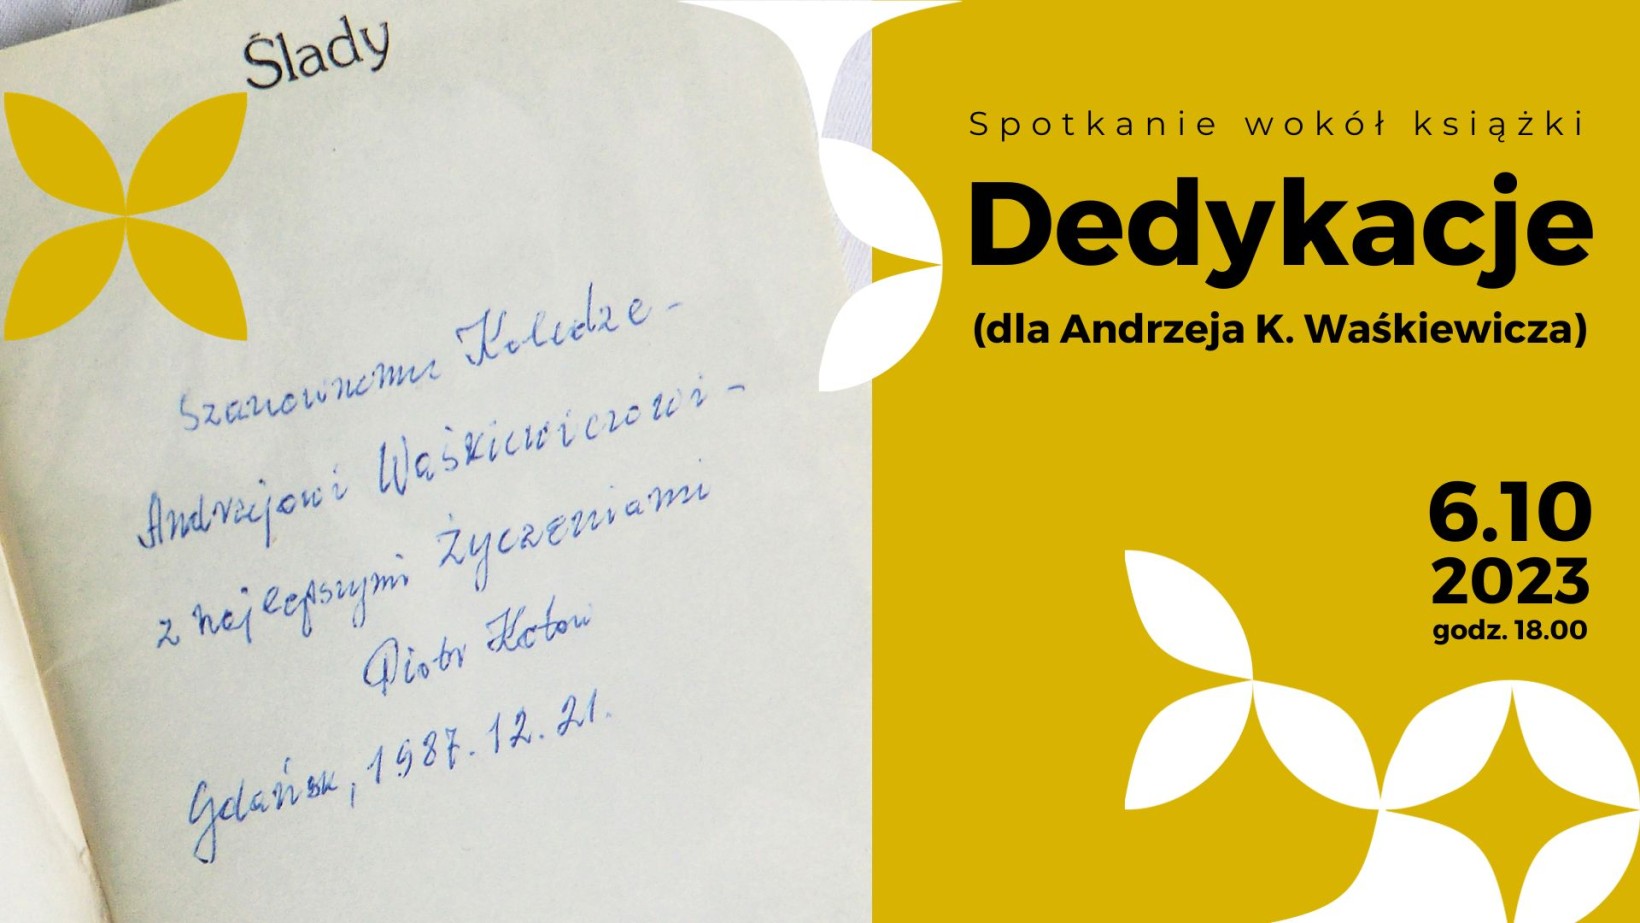 Ślady
Szanownemu Koledze -
Andrzejowi Waśkiewiczowi -
z najlepszymi życzeniami
Piotr Kotow
Gdańsk, 1987.12.21.
Spotkanie wokół książki
Dedykacje
(dla Andrzeja K. Waśkiewicza)
6.10
2023
godz. 18.00